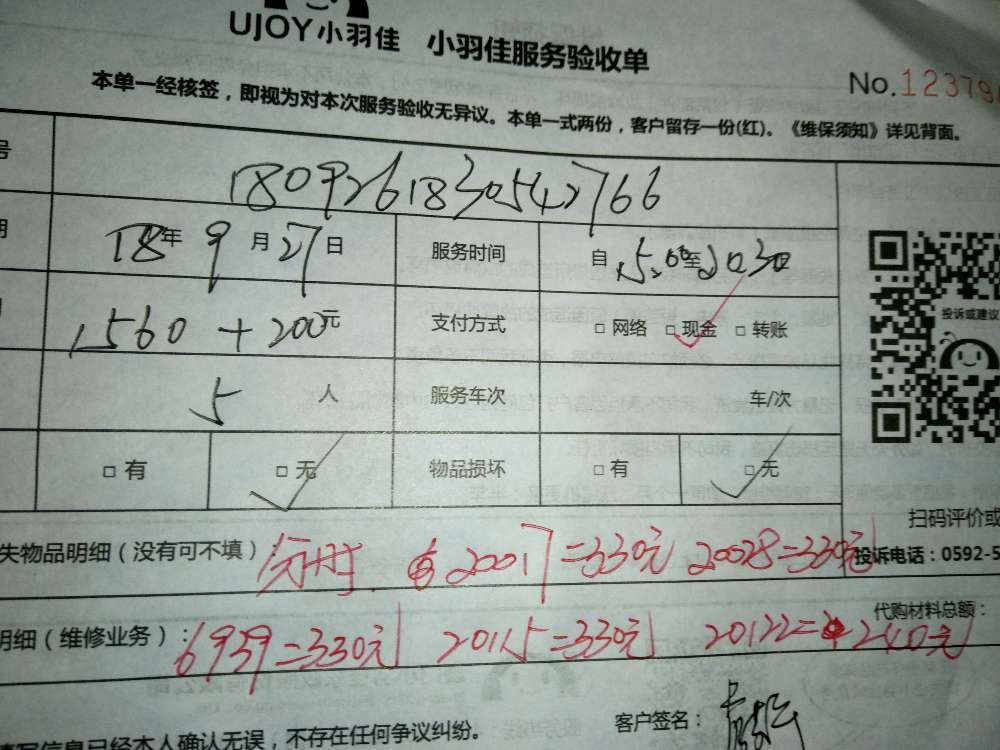 UJOY小羽佳 小羽佳服务验收单
No.12379
本单一经核签，即视为对本次服务验收无异议。本单一式两份，客户留存一份(红)。《维保须知》详见背面。
号 1809261830542766
期 18年9月27日 服务时间 自15:00至2030
1560+200元 支付方式 □网络 □现金 □转账
投诉或建议
5人 服务车次 车/次
□有 □无 物品损坏 □有 □无
扫码评价或
失物品明细（没有可不填）： 20017=330元 20028=330元
投诉电话：0592-5
明细（维修业务）：6939=330元 20115=330元 20122=240元
代购材料总额：
客户签名：
填写信息已经本人确认无误，不存在任何争议纠纷。